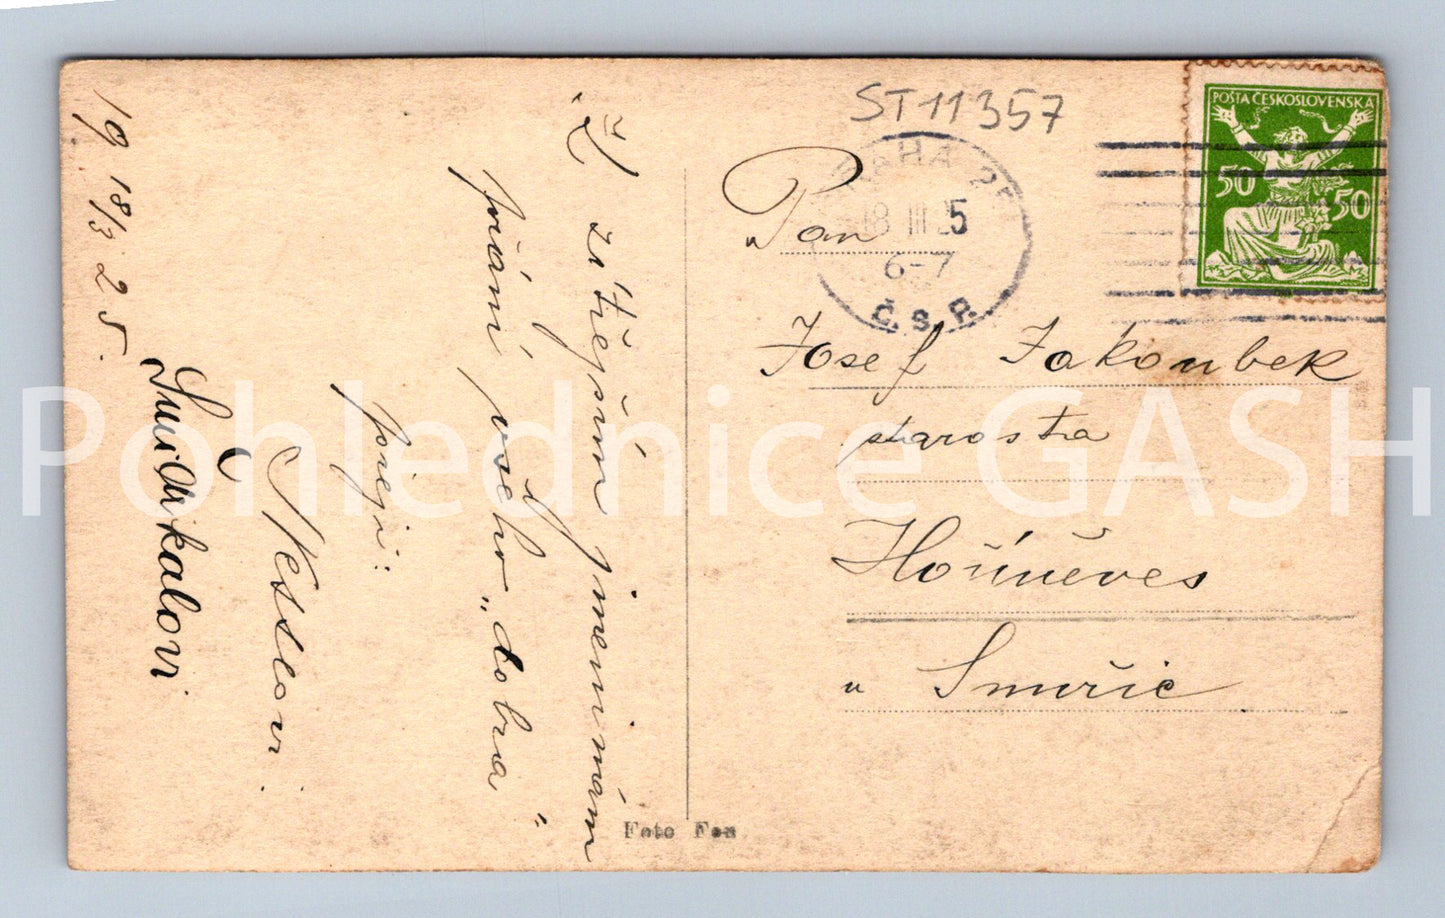 19 18/3 25.
K
zítřejším jmeninám
přání všeho „dobra"
přejí:
Nesslovi
Smrčkalovi
ST11357
PRAHA 25
18 III 25
6-7
Č.S.P.
POŠTA ČESKOSLOVENSKÁ
50 50
Pan
Josef Jakoubek
starosta
Hořiněves
u Smiřic
Foto Fon
Pohlednice GASH